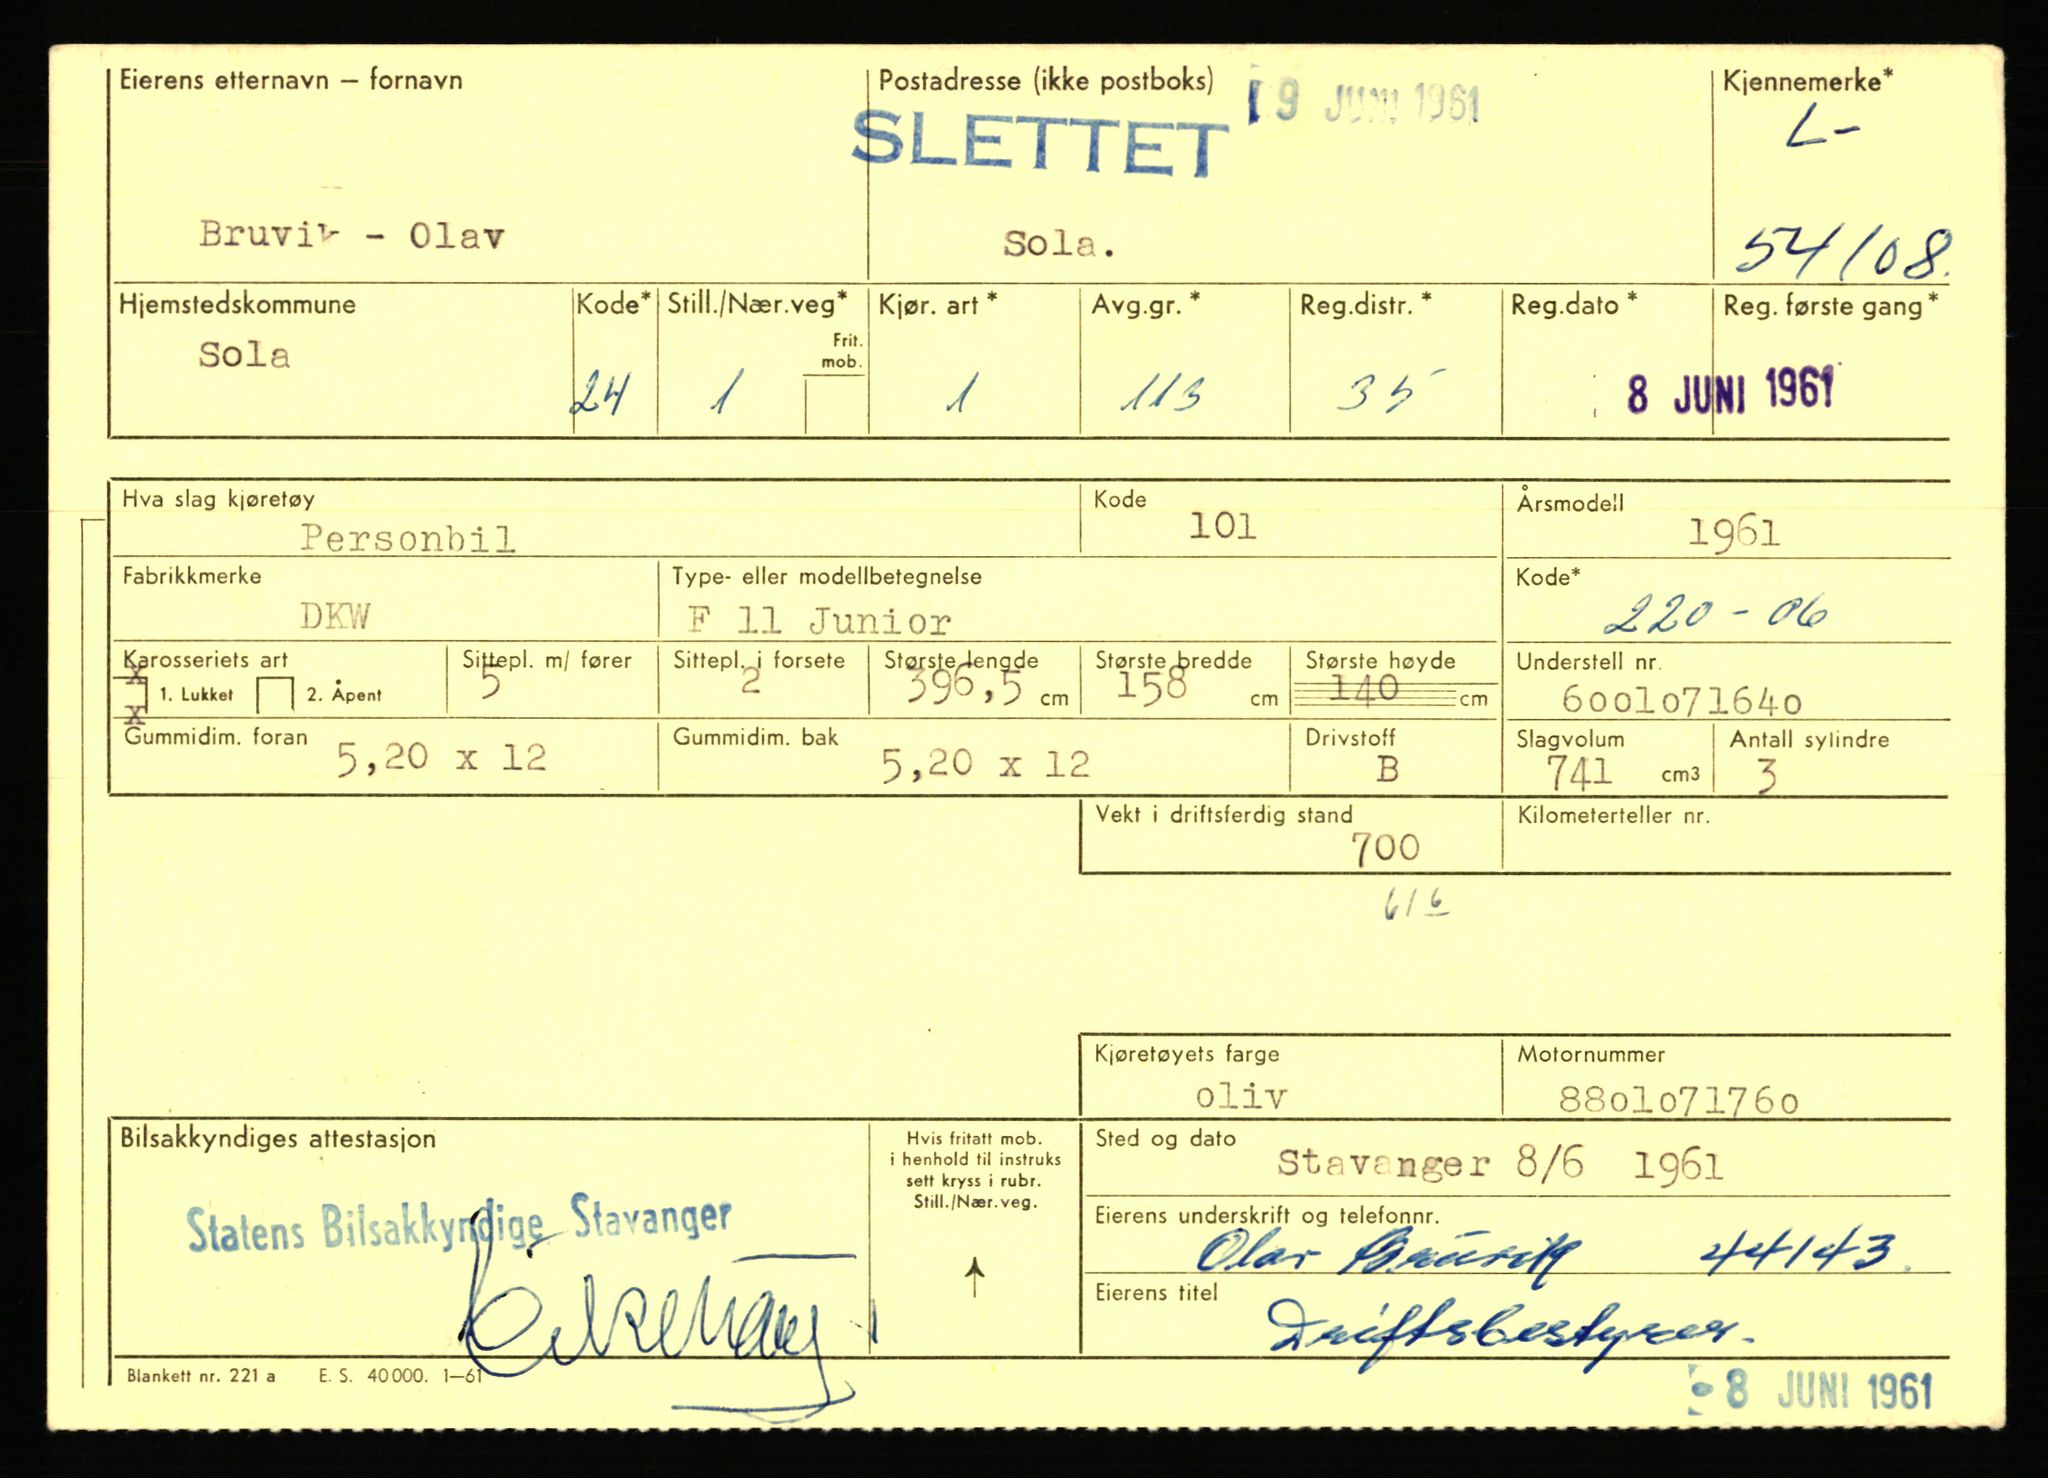 Eierens etternavn — fornavn
Postadresse (ikke postboks)
19 JUNI 1961
Kjennemerke*
SLETTET
L-
Bruvik - Olav
Sola.
54108.
Hjemstedskommune
Kode*
Still./Nær.veg*
Kjør. art *
Avg.gr. *
Reg.distr. *
Reg.dato *
Reg. første gang *
Sola
Frit.
mob.
24
1
1
113
35
8 JUNI 1961
Hva slag kjøretøy
Kode
Årsmodell
Personbil
101
1961
Fabrikkmerke
Type- eller modellbetegnelse
Kode*
DKW
F 11 Junior
220-06
Karosseriets art
Sittepl. m/ fører
Sittepl. i forsete
Største lengde
Største bredde
Største høyde
Understell nr.
x
1. Lukket
2. Åpent
x
5
2
396,5 cm
158 cm
140 cm
6001071640
Gummidim. foran
Gummidim. bak
Drivstoff
Slagvolum
Antall sylindre
5,20 x 12
5,20 x 12
B
741 cm3
3
Vekt i driftsferdig stand
Kilometerteller nr.
700
616
Kjøretøyets farge
Motornummer
oliv
8801071760
Bilsakkyndiges attestasjon
Hvis fritatt mob.
i henhold til instruks
sett kryss i rubr.
Still./Nær.veg.
Sted og dato
Stavanger 8/6 1961
Statens Bilsakkyndige Stavanger
Eierens underskrift og telefonnr.
Olav Bruvik 44143.
Eierens titel
Driftsbestyrer.
Blankett nr. 221 a E. S. 40 000. 1—61
8 JUNI 1961